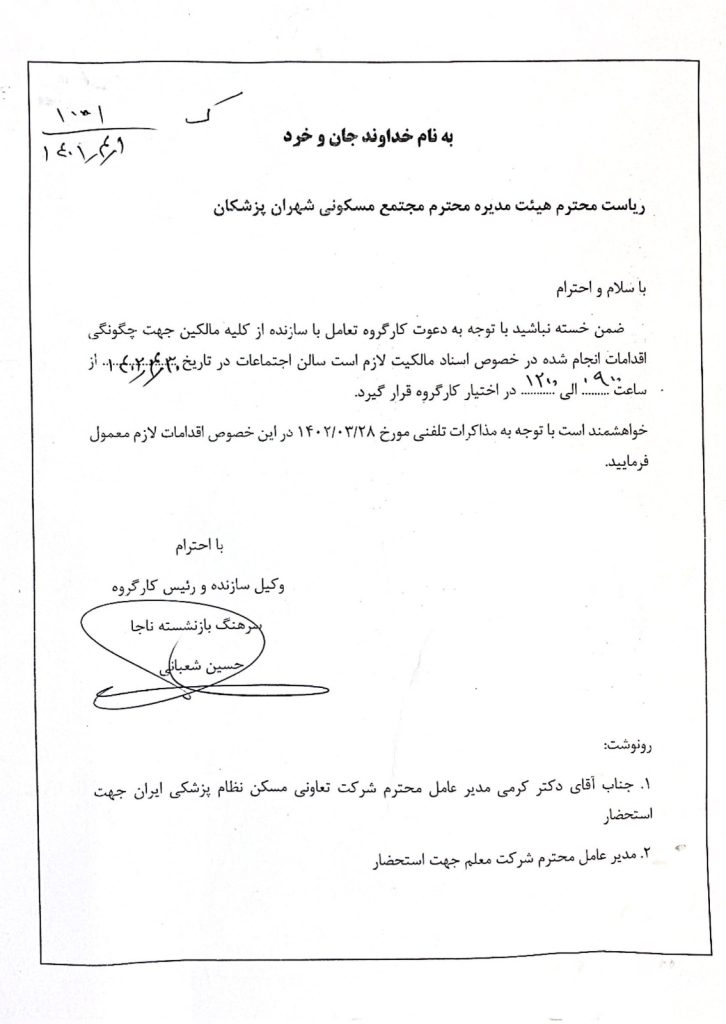 ک
۱۰۵۱
۱۴۰۱/۴/۱
به نام خداوند جان و خرد
ریاست محترم هیئت مدیره محترم مجتمع مسکونی شهران پزشکان
با سلام و احترام
ضمن خسته نباشید با توجه به دعوت کارگروه تعامل با سازنده از کلیه مالکین جهت چگونگی
اقدامات انجام شده در خصوص اسناد مالکیت لازم است سالن اجتماعات در تاریخ ۱۴۰۲/۴/۳۰ از
ساعت ۰۹۰۰ الی ۱۲۰۰ در اختیار کارگروه قرار گیرد.
خواهشمند است با توجه به مذاکرات تلفنی مورخ ۱۴۰۲/۰۳/۲۸ در این خصوص اقدامات لازم معمول
فرمایید.
با احترام
وکیل سازنده و رئیس کارگروه
سرهنگ بازنشسته ناجا
حسین شعبانی
رونوشت:
۱. جناب آقای دکتر کرمی مدیر عامل محترم شرکت تعاونی مسکن نظام پزشکی ایران جهت
استحضار
۲. مدیر عامل محترم شرکت معلم جهت استحضار